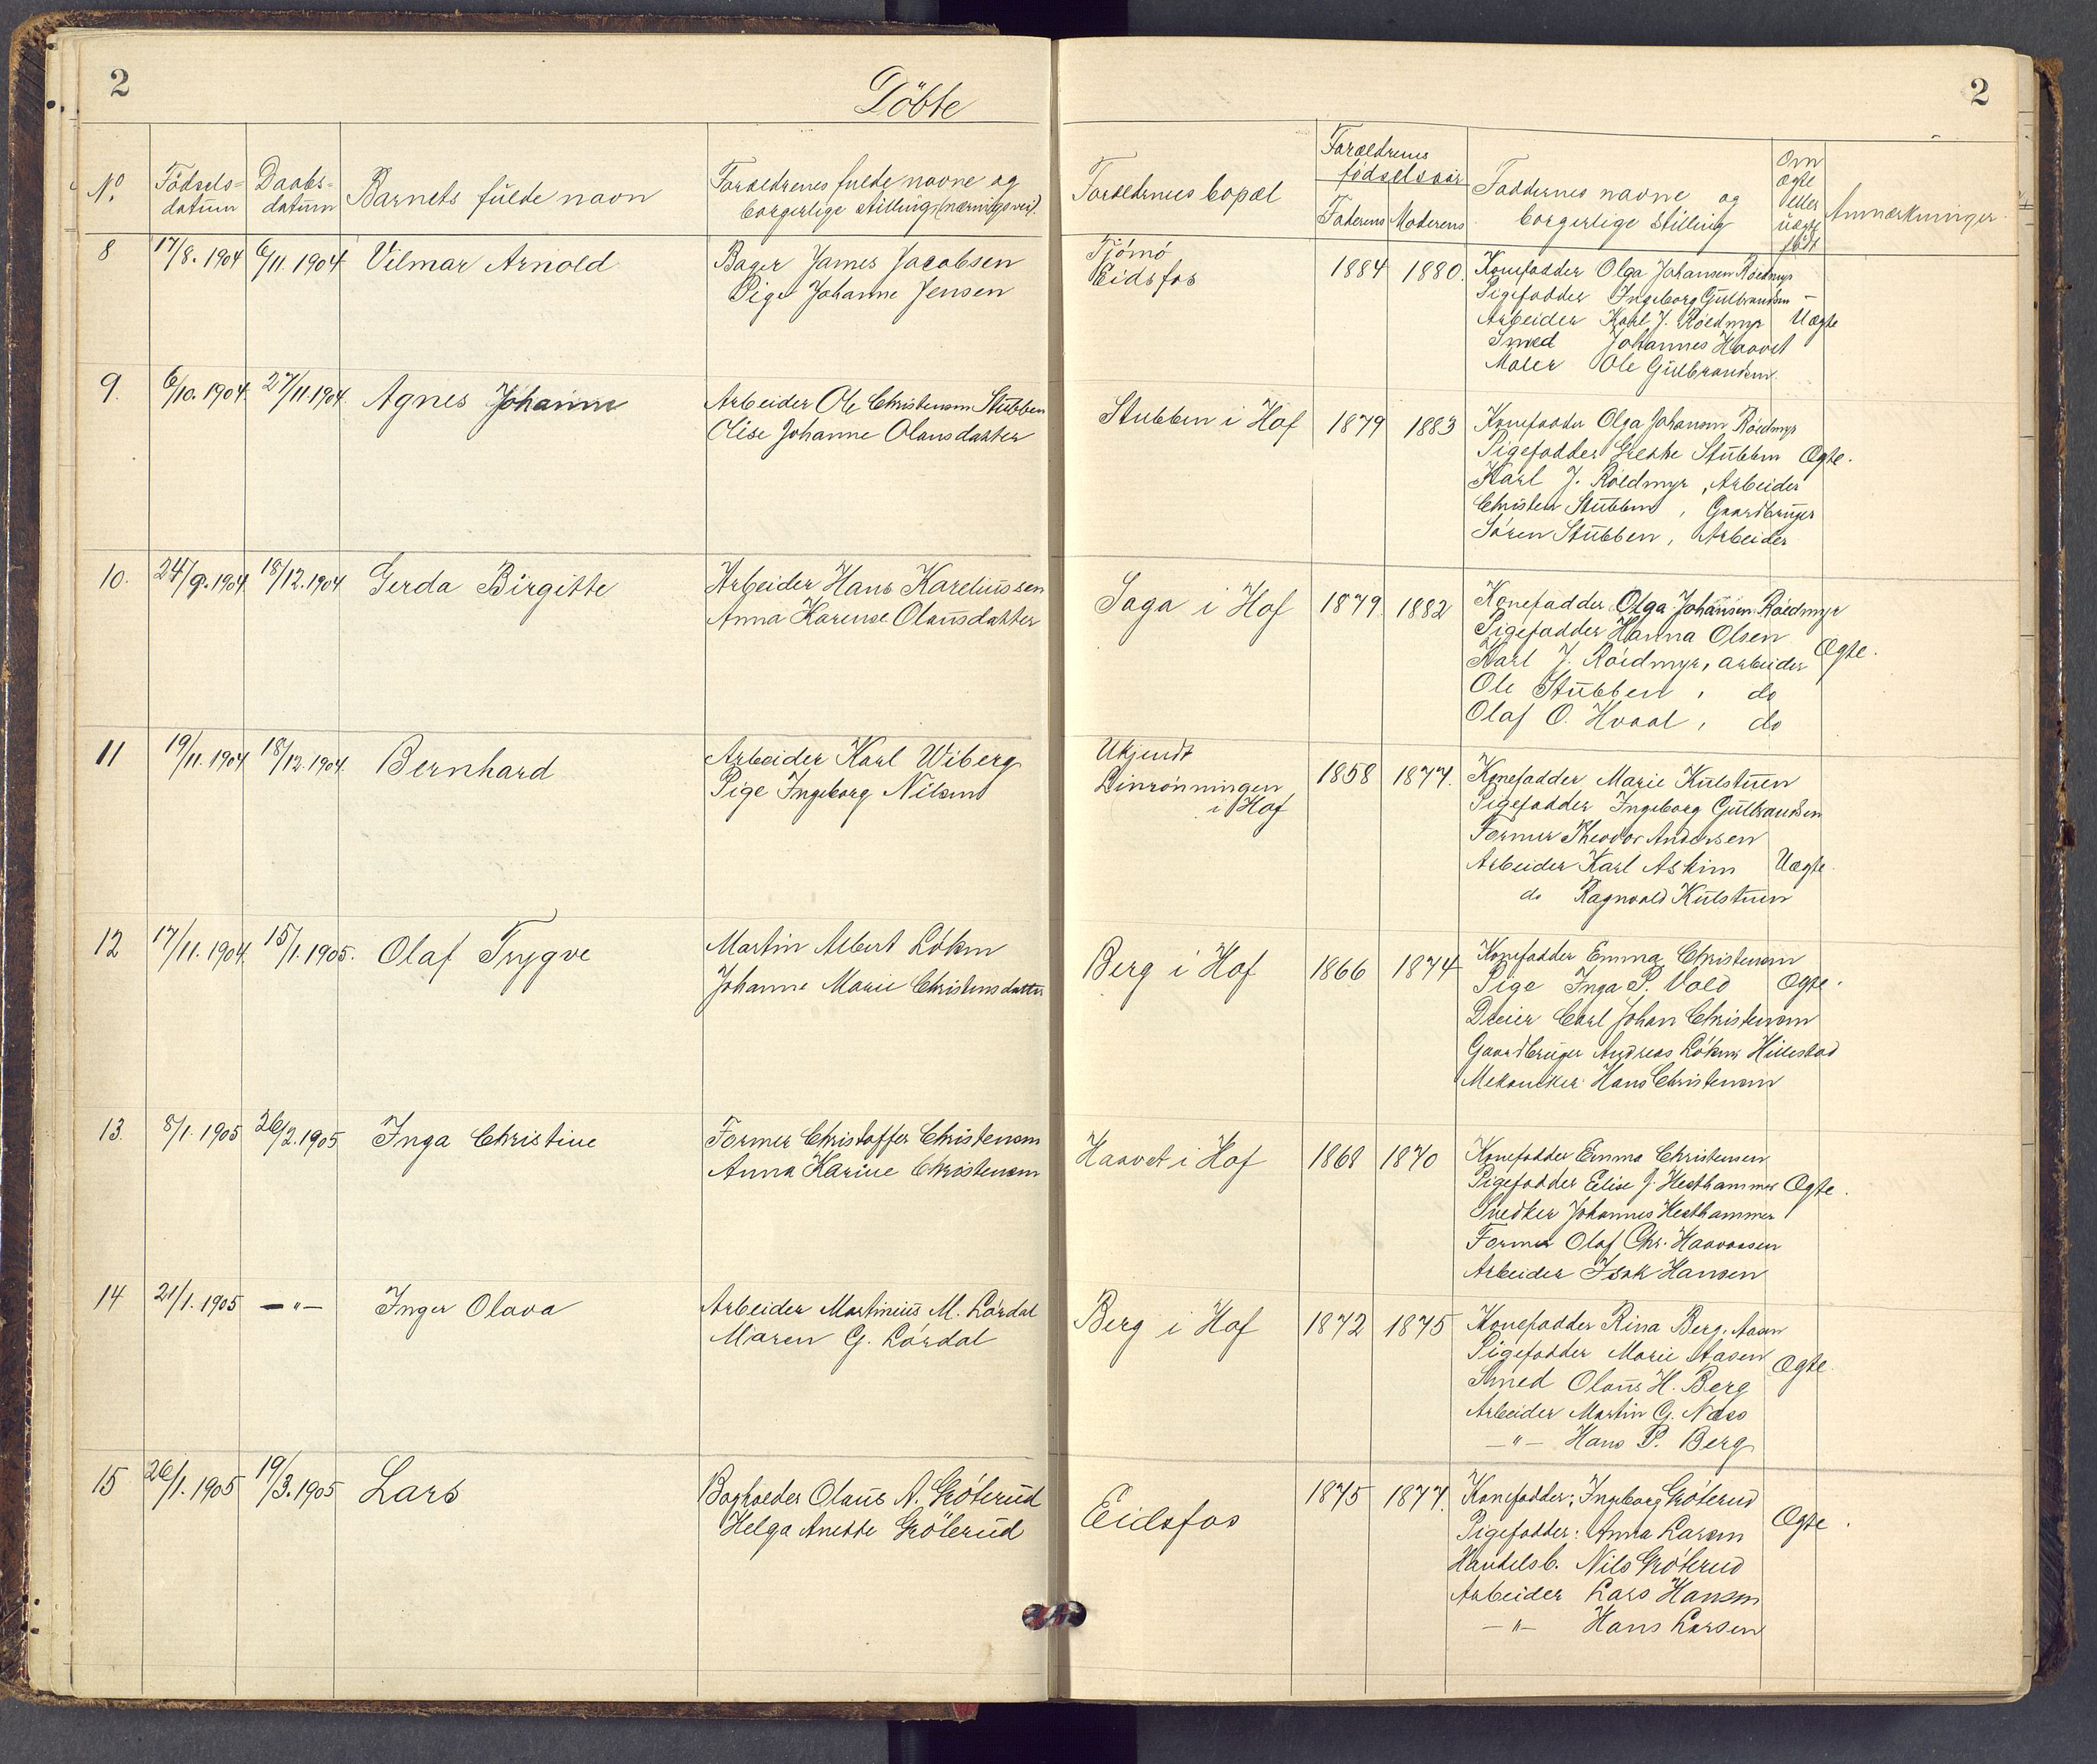 2
Döbte
2
No
Födsels-
datum
Daabs-
datum
Barnets fulde navn
Forældrenes fulde navne og
borgerlige stilling, (næringsvei).
Forældrenes bopæl
Forældrenes
fødselsaar
Faderens Moderens
Faddernes navne og
borgerlige stilling
Om
ægte
eller
uægte
født
Anmærkninger.
8 17/8. 1904 6/11. 1904 Vilmar Arnold
Bager James Jacobsen
Pige Johanne Jensen
Tjömö
Eidsfos
1884 1880.
Konefadder Olga Johansen Röedmyr
Pigefadder Ingeborg Gulbrandsen –
Arbeider Karl J. Röedmyr Uægte
Smed Johannes Haavet
Maler Ole Gulbrandsen.
9. 6/10. 1904. 27/11. 1904 Agnes Johanne
Arbeider Ole Christensen Stubben
Elise Johanne Olausdatter
Stubben i Hof 1879 1883
Konefadder Olga Johansen Röidmyr
Pigefadder Grethe Stubben Ægte.
Karl J. Röedmyr, Arbeider
Christen Stubben, Gaardbruger
Sören Stubben, Arbeider
10. 24/9. 1904 18/12. 1904 Gerda Birgitte
Arbeider Hans Kareliussen
Anna Karense Olausdatter
Saga i Hof 1879. 1882
Konefadder Olga Johansen Röedmyr
Pigefadder Hanna Olsen
Karl J. Röidmyr, arbeider Ægte.
Ole Stubben, do
Olaf O. Hvaal, do
11 19/11. 1904 18/12. 1904. Bernhard
Arbeider Karl Wiberg
Pige Ingeborg Nilsen
Ukjendt
Linrönningen
i Hof
1858 1877.
Konefadder Marie Kulstuen
Pigefadder Ingeborg Gulbrandsen
Former Theodor Andersen
Arbeider Karl Askim Uægte.
do Ragnvald Kulstuen
12 17/11. 1904. 15/1. 1905. Olaf Trygve
Martin Albert Löken
Johanne Marie Christensdatter
Berg i Hof 1866 1874
Konefadder Emma Christensen
Pige Inga P. Vold Ægte.
Dreier Carl Johan Christensen
Gaardbruger Andreas Löken Hillestad
Mekaniker Hans Christensen
13. 8/1. 1905 26/2. 1905 Inga Christine
Former Christoffer Christensen
Anna Karine Christensen
Haavet i Hof 1868 1870
Konefadder Emma Christensen
Pigefadder Elise J. Hesthammer Ægte.
Snedker Johannes Hesthammer
Former Olaf Chr. Haavaasen
Arbeider Isak Hansen
14 21/1. 1905 — " — Inger Olava
Arbeider Martinius M. Lördal
Maren G. Lördal
Berg i Hof 1872 1875
Konefadder Rina Berg, Aasen
Pigefadder Marie Aasen Ægte.
Smed Olaus H. Berg
Arbeider Martin G. Næss
— " — Hans P. Berg
15 26/1. 1905 19/3. 1905 Lars
Bogholder Olaus A. Gröterud
Helga Anette Gröterud
Eidsfos
1875 1877.
Konefadder: Ingeborg Gröterud
Pigefadder: Anna Larsen Ægte.
Handelsb. Nils Gröterud
Arbeider Lars Hansen
— " — Hans Larsen